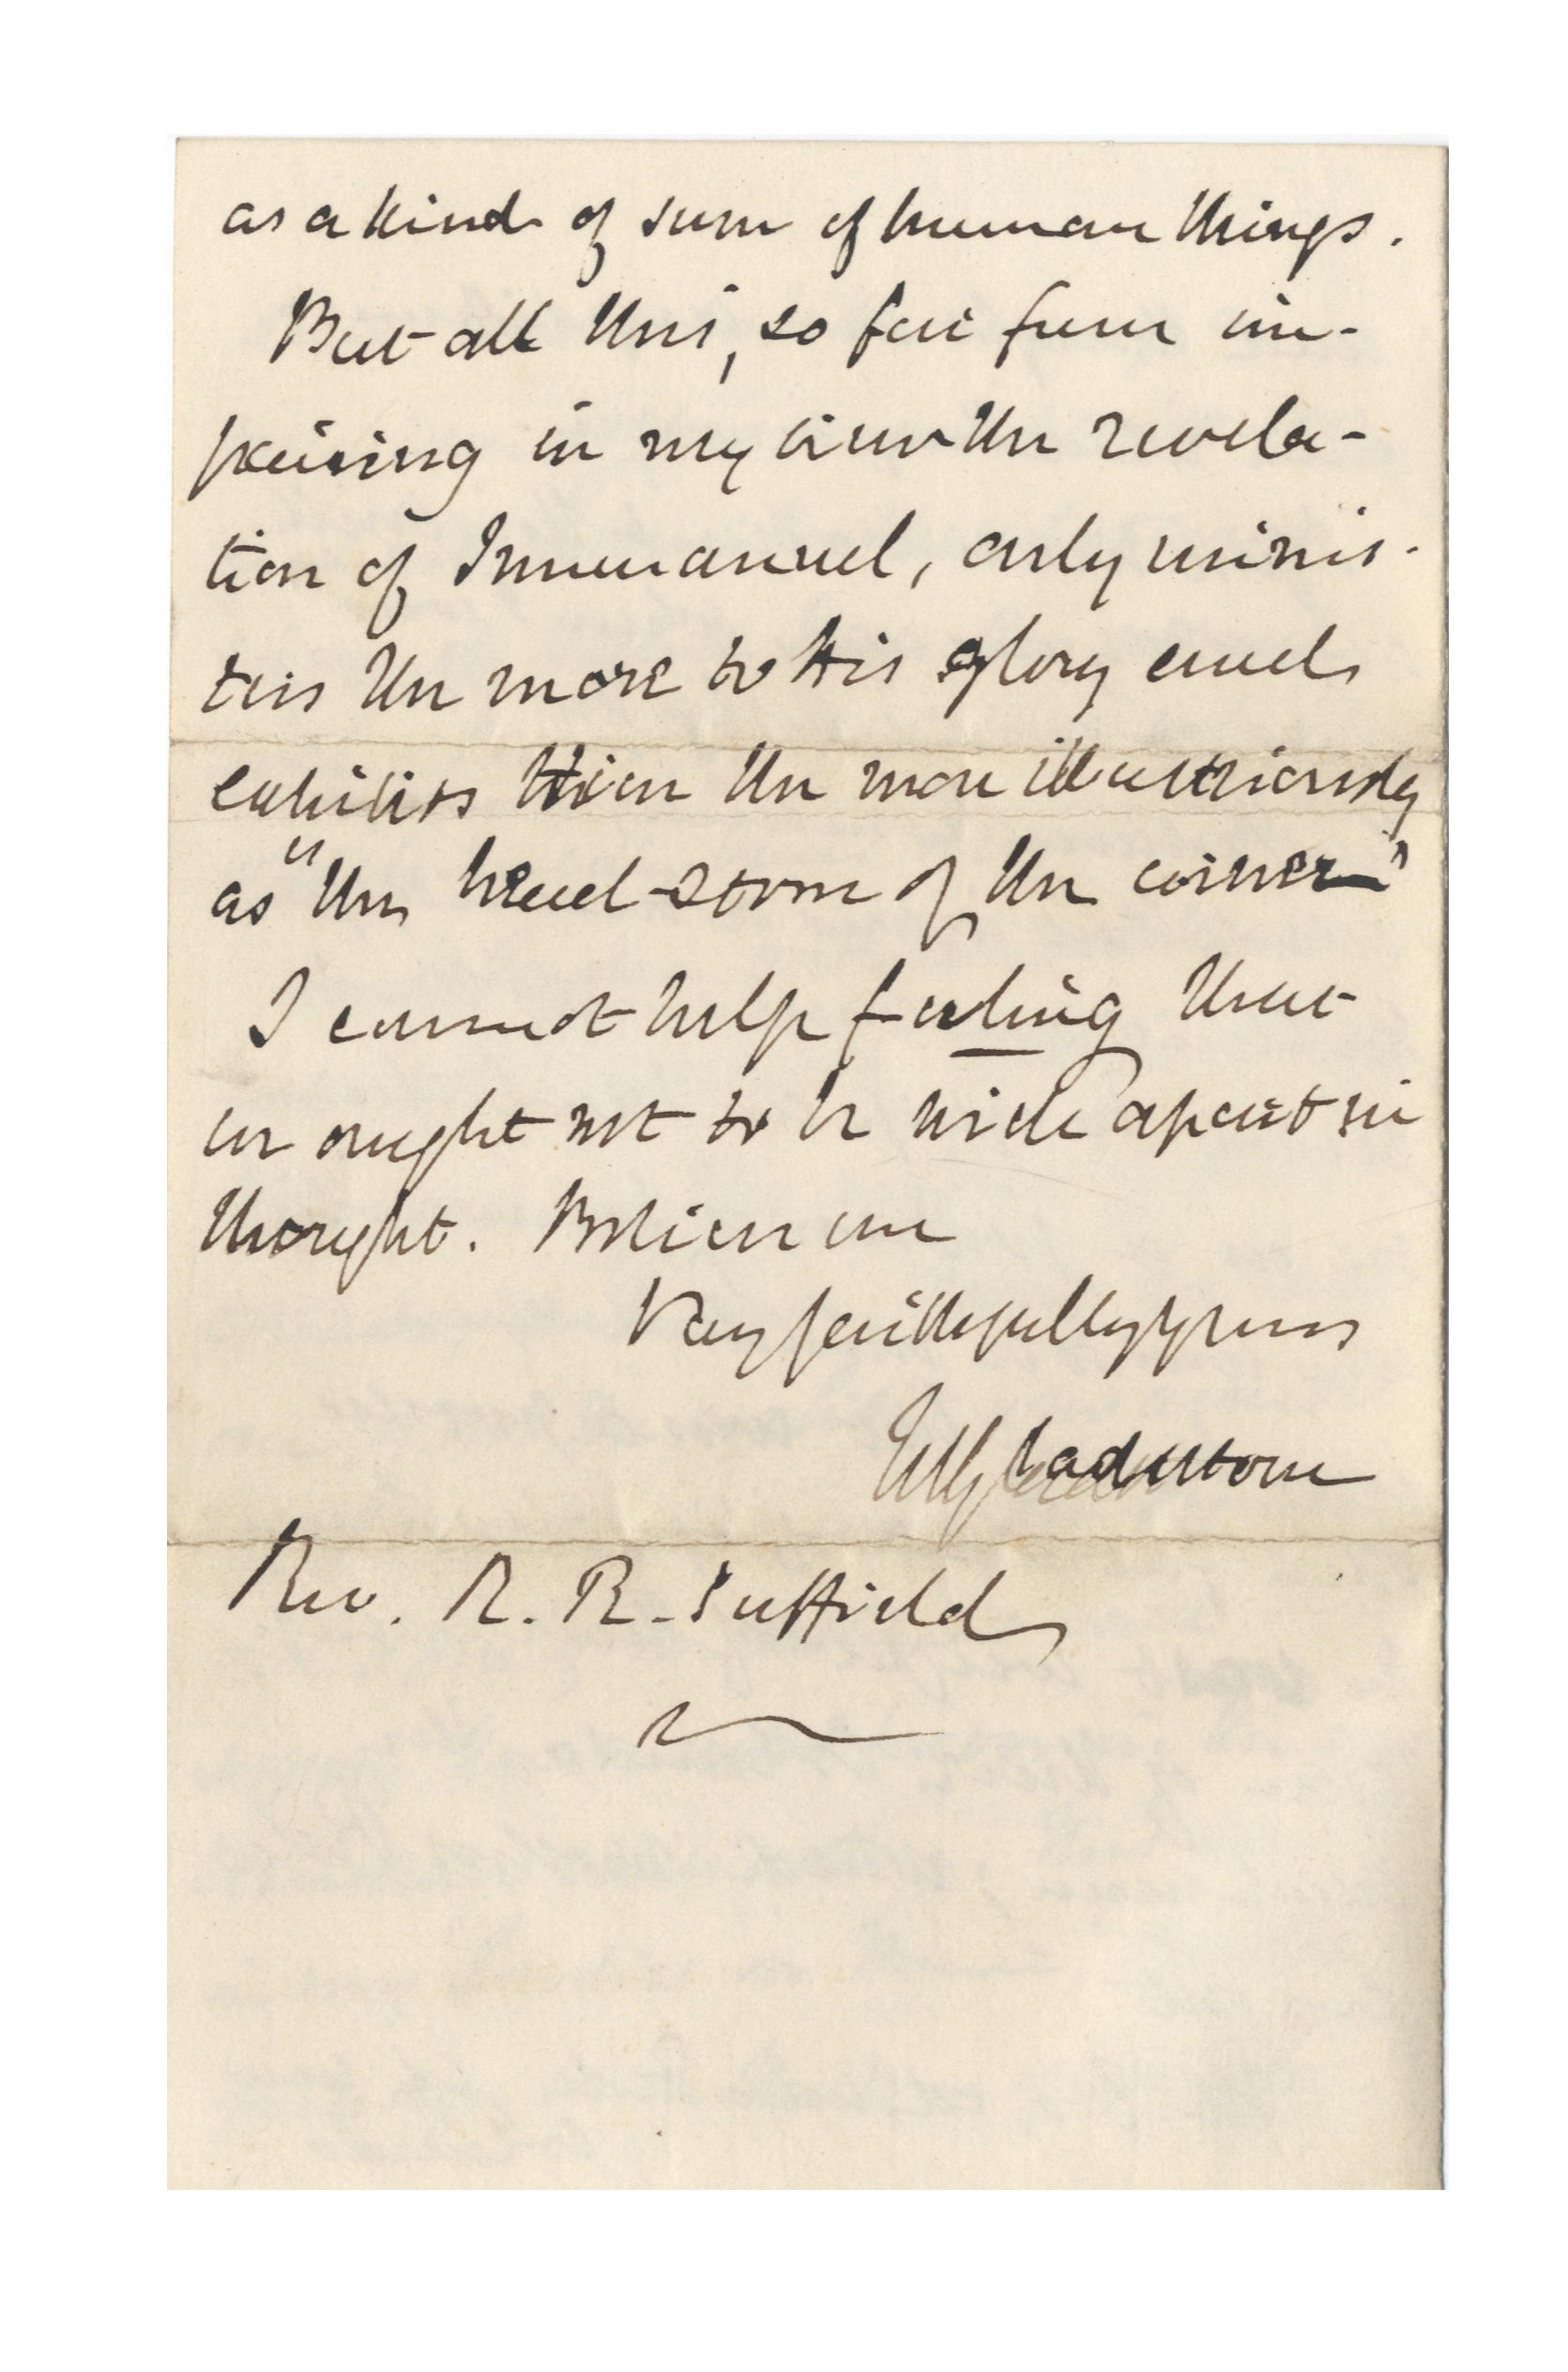 as a kind of sum of human things.
But all this, so far from im-
pairing in my view the revela-
tion of Immanuel, only minis-
ters the more to His glory and
exhibits Him the more illustriously
as "the head-stone of the corner"
I cannot help feeling that
we ought not to be wide apart in
thought. Believe me
Very faithfully yours
WE Gladstone
Rev. R. R. Suffield